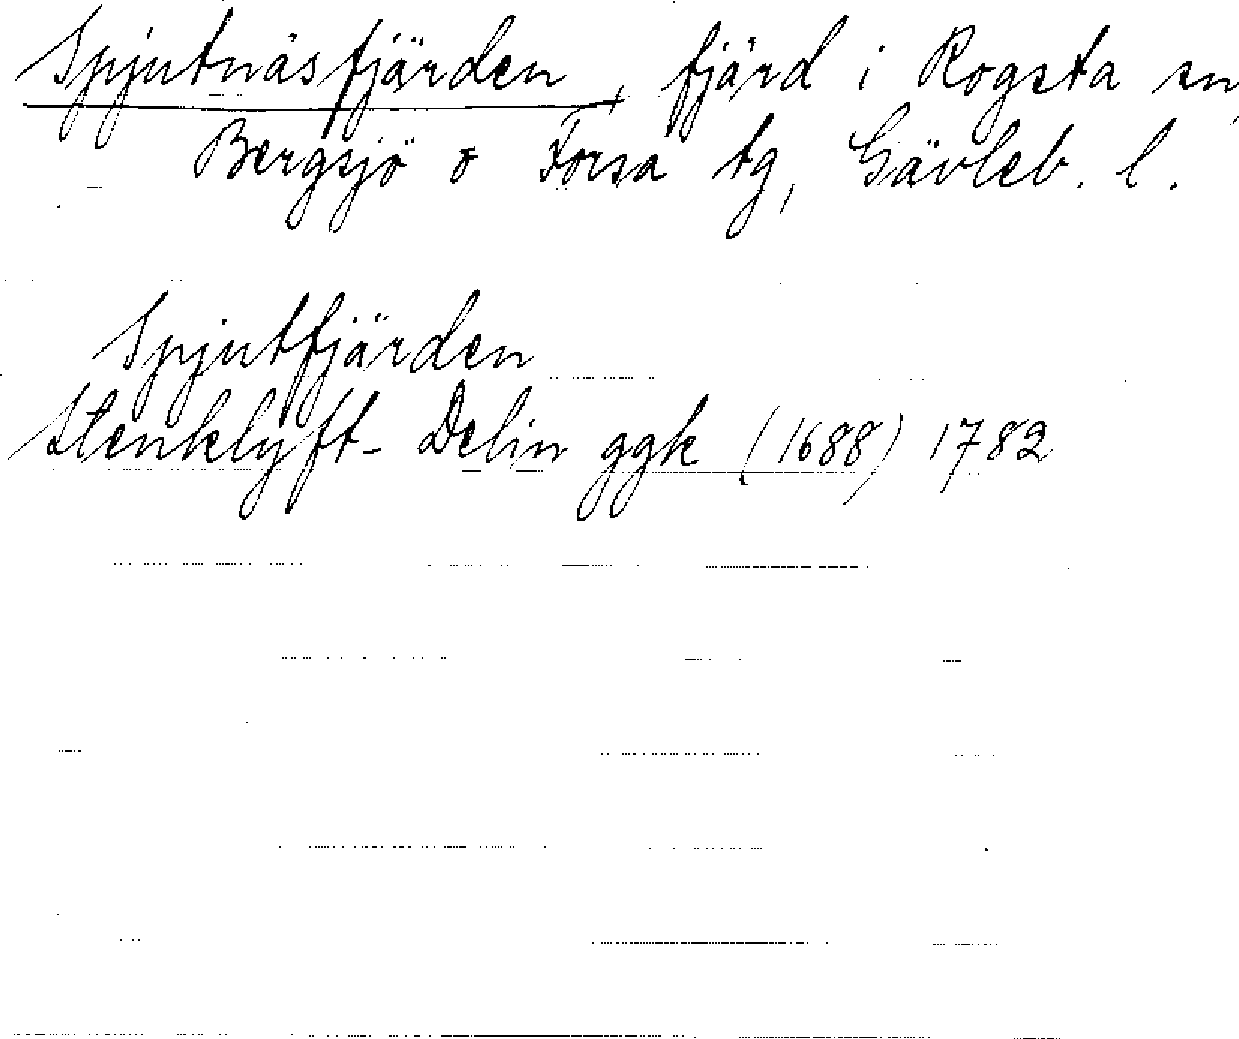 Spjutnäsfjärden, fjärd i Rogsta sn,
Bergsjö o Forsa tg, Gävleb. l.
Spjutfjärden
Stenklyft- Delin ggk (1688) 1782